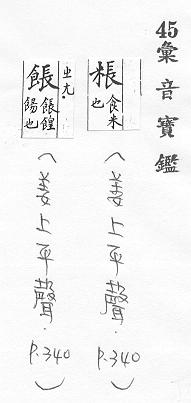 45彙音寶鑑
粻 食米也
(姜上平聲. P.340)
ㄓㄤ.
餦 餦餭餳也
(姜上平聲. P.340)